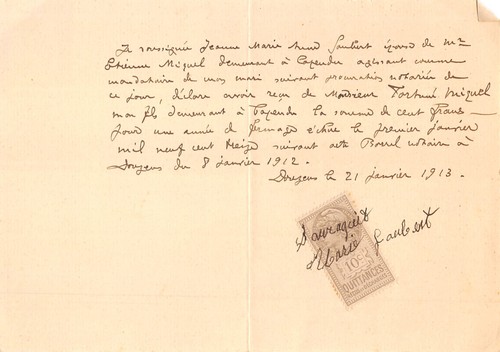 Je soussignée Jeanne Marie Gaubert épouse de Mr
Etienne Miquel demeurant à Capendu agissant comme
mandataire de mon mari suivant procuration notariée de
ce jour, déclare avoir reçu de Monsieur Fortuné Miquel
mon fils demeurant à Capendu la somme de cent francs
pour une année de fermage échue le premier janvier
mil neuf cent treize suivant acte notaire à
Douzens du 8 janvier 1912.
Douzens le 21 janvier 1913.
Marie Gaubert
10c
QUITTANCES